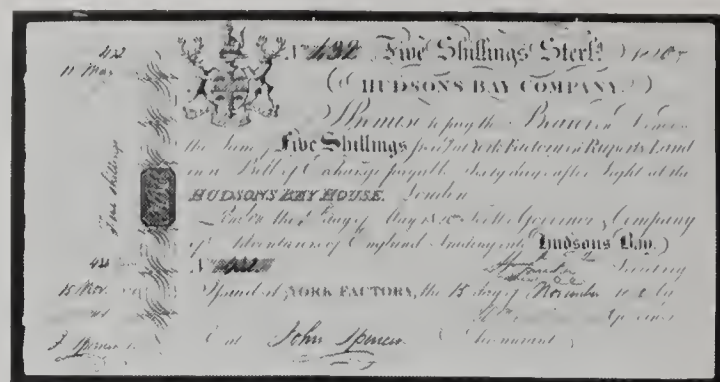 432
11 May
Five shillings
No 432 Five Shillings Sterg.
HUDSONS BAY COMPANY.
Promise to pay the Bearer on Demand
the Sum of Five Shillings York Factory in Ruperts Land
in a Bill of Exchange payable Sixty days after Sight at the
HUDSONS BAY HOUSE. London
London the day of May for the Governor & Company
of Adventurers of England trading into Hudsons Bay.
No 432 Secretary
15 Nov.
Issued at YORK FACTORY, the 15 day of November by
Governor
J Spencer
John Spencer Accountant